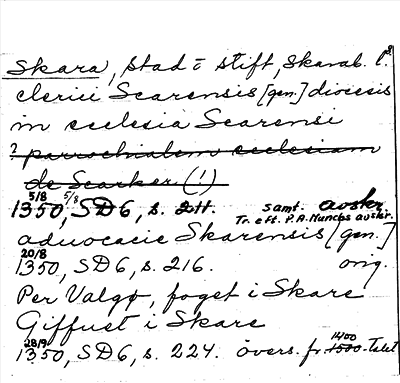 Skara, stad o stift, Skarab. l.
clerici Scarensis [gen.] diocesis
in ecclesia Scarensi
? parrochialem ecclesiam
de Scarker. (!)
5/8 5/8
1350, SD6, s. 211. samt. avskr.
Tr. eft. P.A. Munchs avskr.
aduocacie Skarensis [gen.]
20/8
1350, SD6, s. 216. orig.
Per Valgø, foget i Skare
Giffuet i Skare
28/9 1400
1350, SD6, s. 224. övers. fr. 1500-Talet